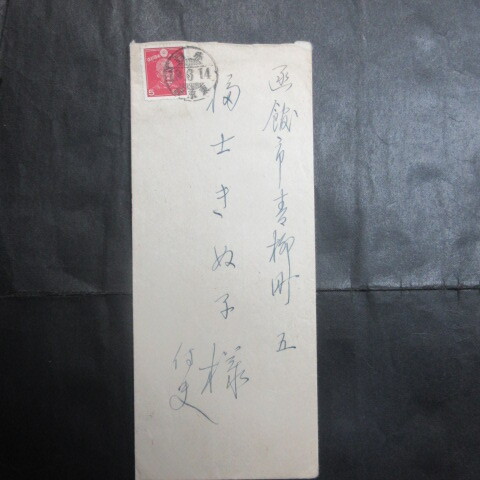 函館市青柳町五
福士きぬ子様
侍史
5
14